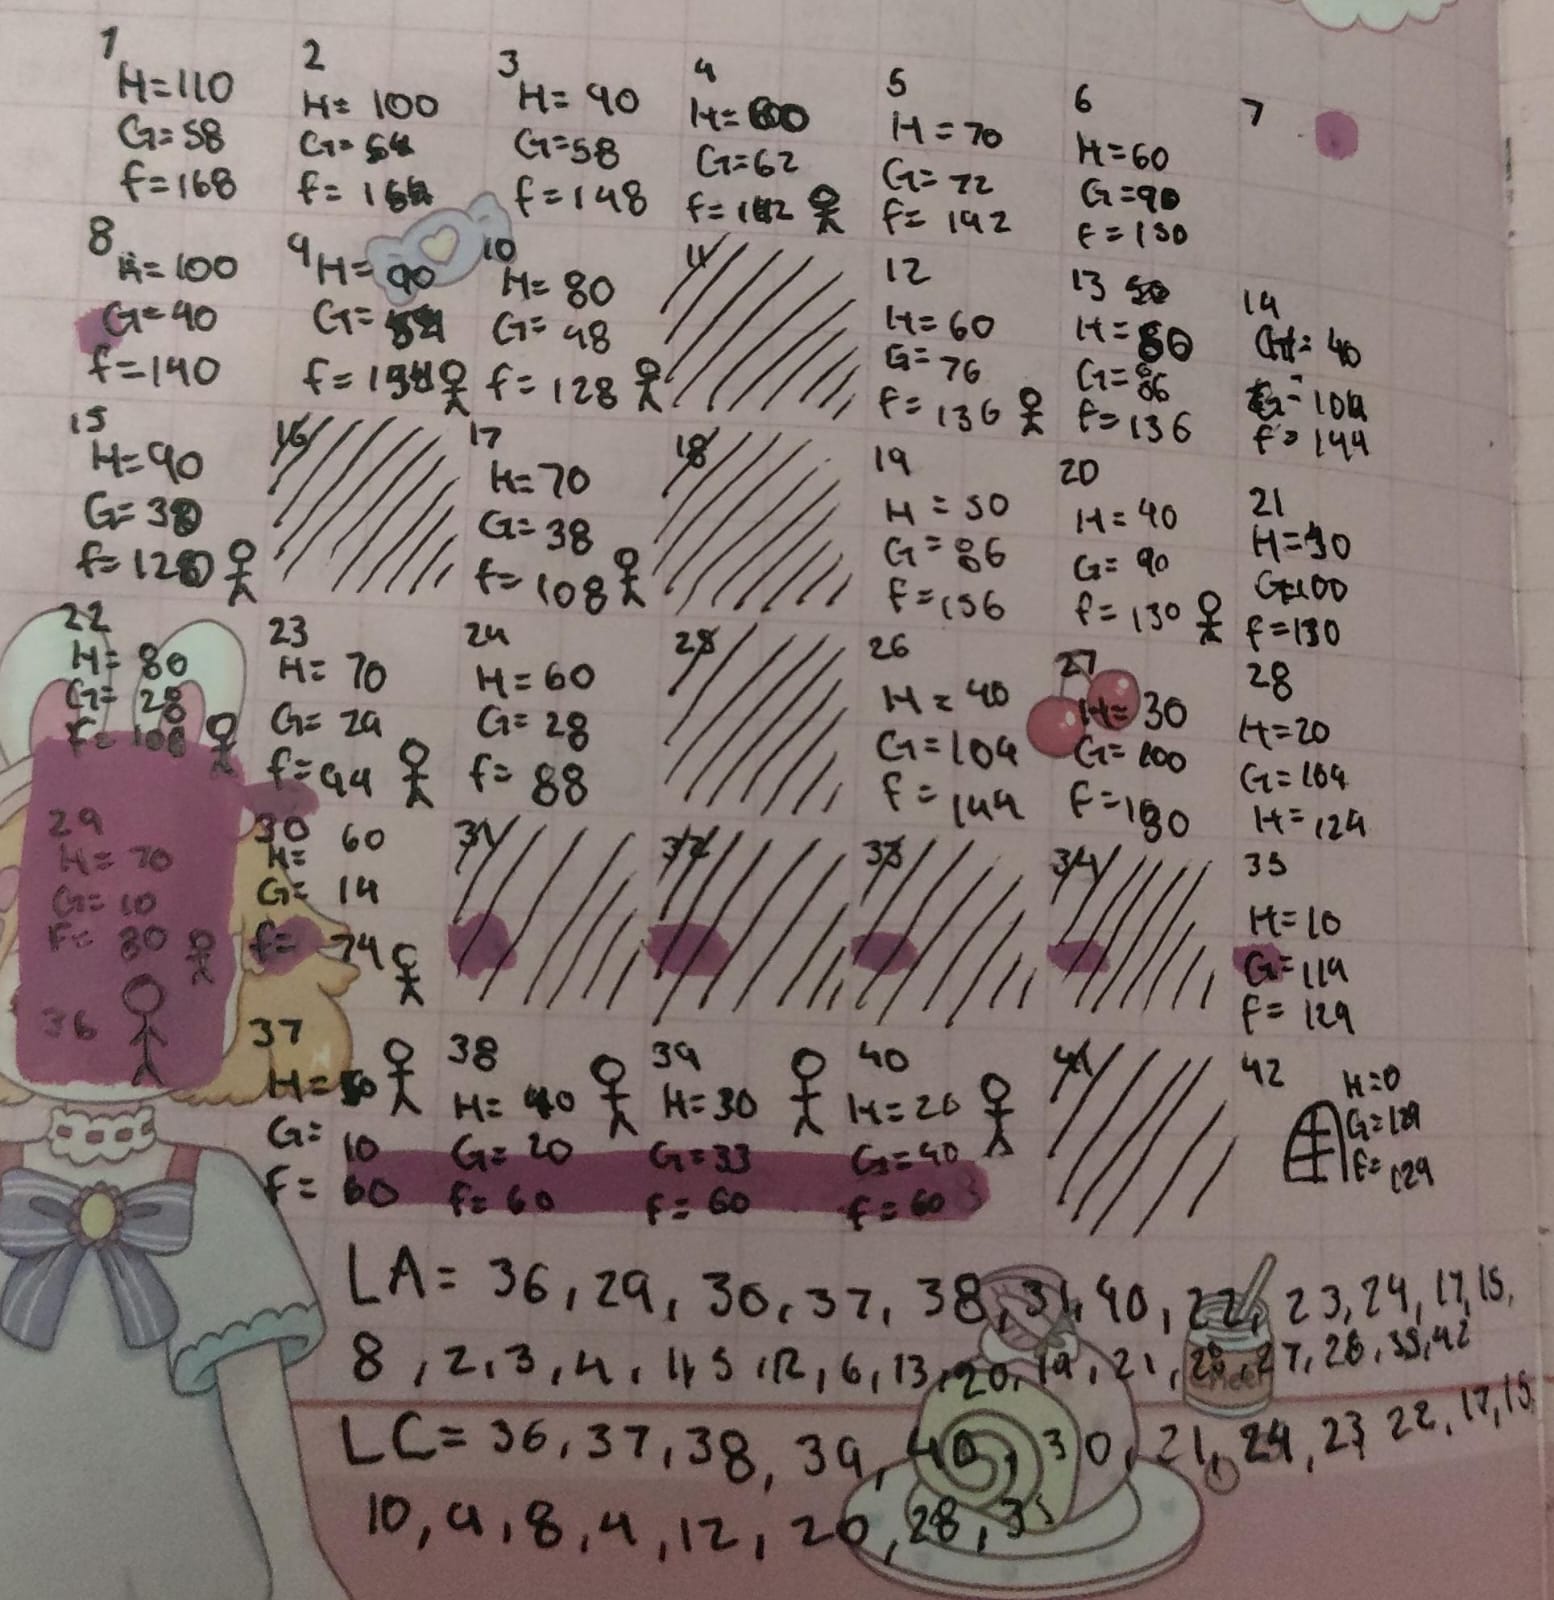 1
H=110
G=58
f=168
2
H= 100
G=
f=
3
H= 90
G=58
f=148
4
H=
G=62
f=
5
H=70
G=72
f= 142
6
H=60
G=90
f=150
7
8
H=100
G=40
f=140
9
H= 90
G=
f=
10
H= 80
G= 48
f= 128
11
12
H=60
G=76
f= 136
13 50
H=
G=86
f=136
14
H= 40
G= 104
f= 144
15
H=90
G=
f=
16
17
H=70
G=38
f= 108
18
19
H=50
G=86
f=136
20
H=40
G= 90
f= 130
21
H=30
G=100
f=130
22
H= 80
G= 28
f= 108
23
H= 70
G= 24
f=94
24
H=60
G=28
f= 88
25
26
H= 40
G=104
f= 144
27
H= 30
G= 100
f=130
28
H=20
G= 104
H= 124
29
H= 70
G= 10
F= 80
30 60
H=
G= 14
f= 74
31
32
33
34
35
H=10
G=114
F= 124
36
37
H=50
G= 10
F= 60
38
H= 40
G= 20
f= 60
39
H=30
G=33
f= 60
40
H=20
G=40
f= 60
41
42
H=0
G=124
F=124
LA= 36, 29, 30, 37, 38, 40, 22, 23, 24, 17, 15,
8, 2, 3, 4, 5, 12, 6, 13, 20, 19, 21, 27, 28, 35, 42
LC= 36, 37, 38, 39, 40, 30, 24, 23, 22, 17, 15
10, 9, 8, 4, 12, 20, 28, 35